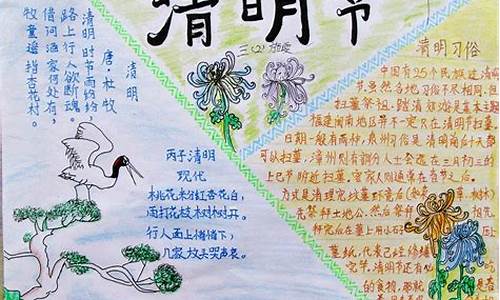 清明节
三(2)
清明
唐·杜牧
清明时节雨纷纷，
路上行人欲断魂。
借问酒家何处有，
牧童遥指杏花村。
丙子清明
现代
桃花米分红杏花白，
雨打花枝树树开。
行人面上悄悄下，
几家放头哭声哀。
清明习俗
中国有25个民族过清明
节，虽然各地习俗不尽相同，但
扫墓祭祖、踏清郊游是基本主题
福建闽南地区并不一定只在清明节扫墓
日期一般有两种，泉州习俗是清明前后十天都
可以扫墓，漳州则有部分人士会选在三月初三的
上巳节附近扫墓，客家人则通常在春节之后。
方式是清理完坟墓环境后
先祭拜土地公，然后祭拜
拜完后在墓上用小石
墓纸，代表已经修缮
完节，清明节还有吃
的食物，那就